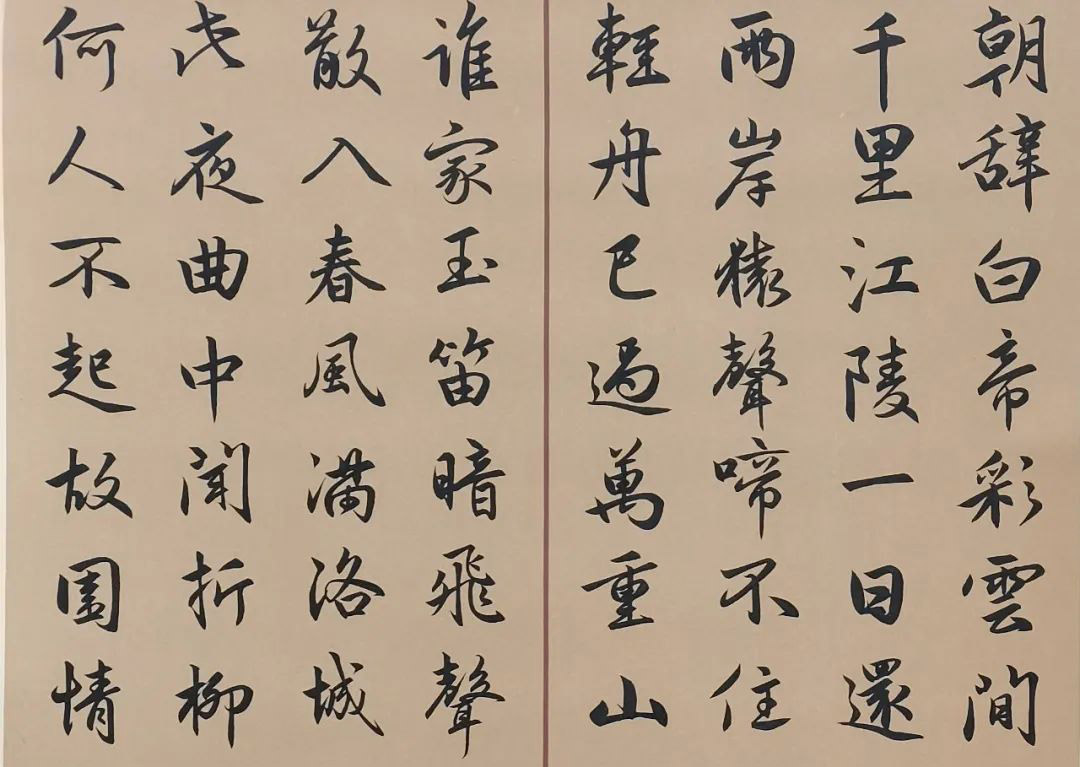 朝辞白帝彩雲間
千里江陵一日還
兩岸猿聲啼不住
輕舟已過萬重山
誰家玉笛暗飛聲
散入春風滿洛城
此夜曲中聞折柳
何人不起故園情